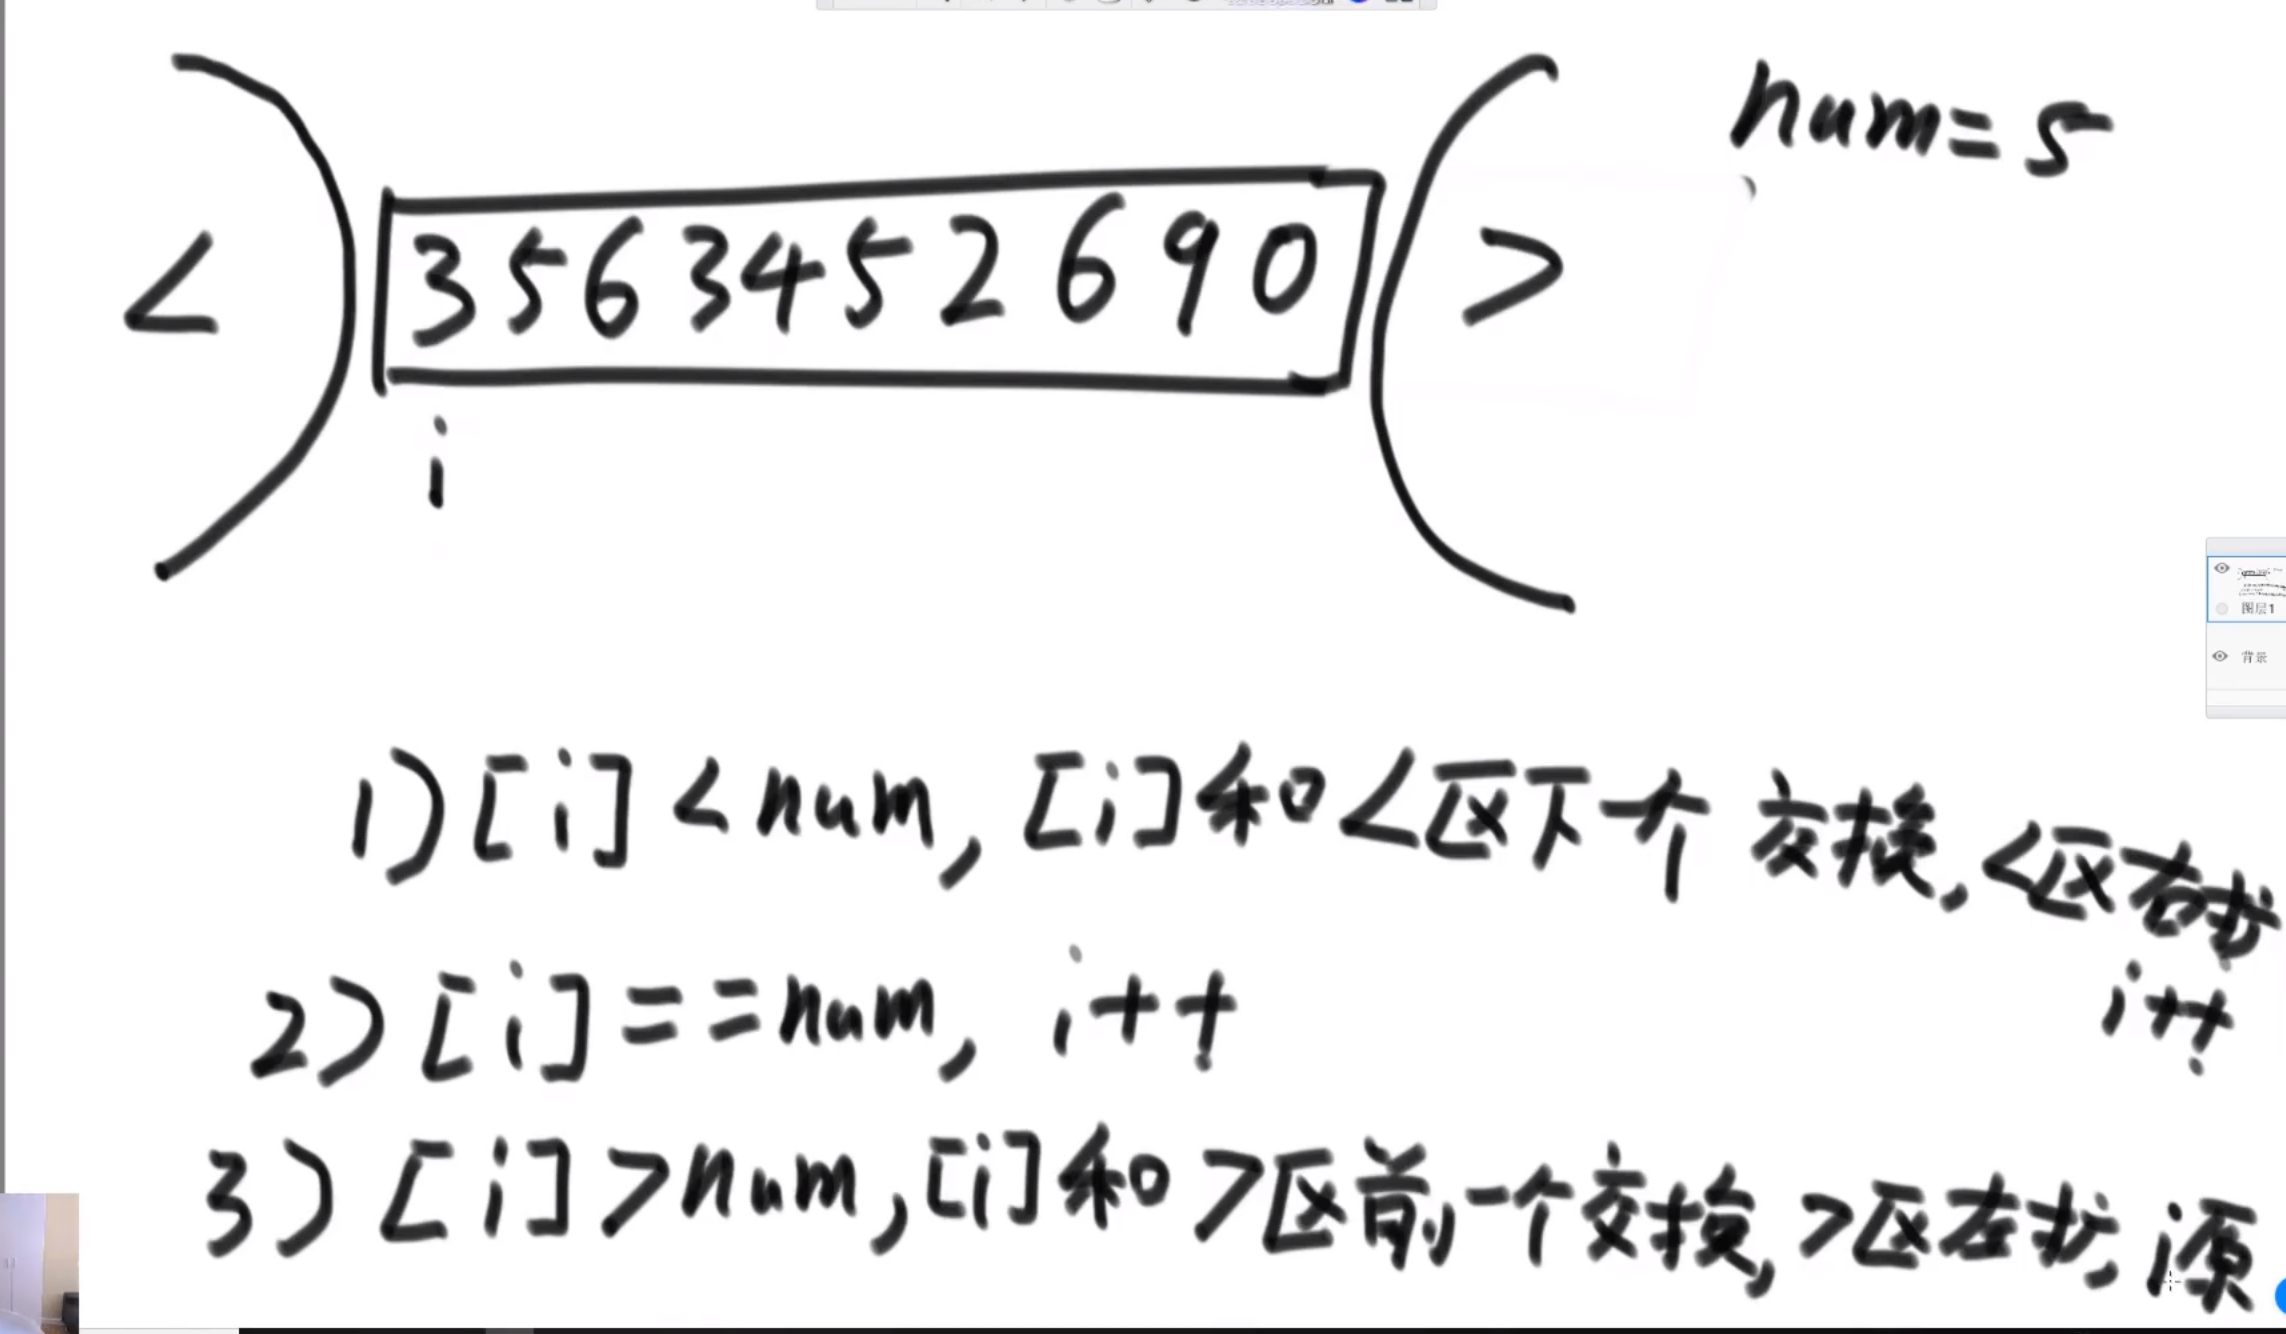 num=5
< 3 5 6 3 4 5 2 6 9 0 >
i
图层1
背景
1) [i] < num, [i]和<区下一个 交换, <区右扩
i++
2) [i] == num, i++
3) [i] > num, [i]和 >区前一个交换, >区左扩, i源